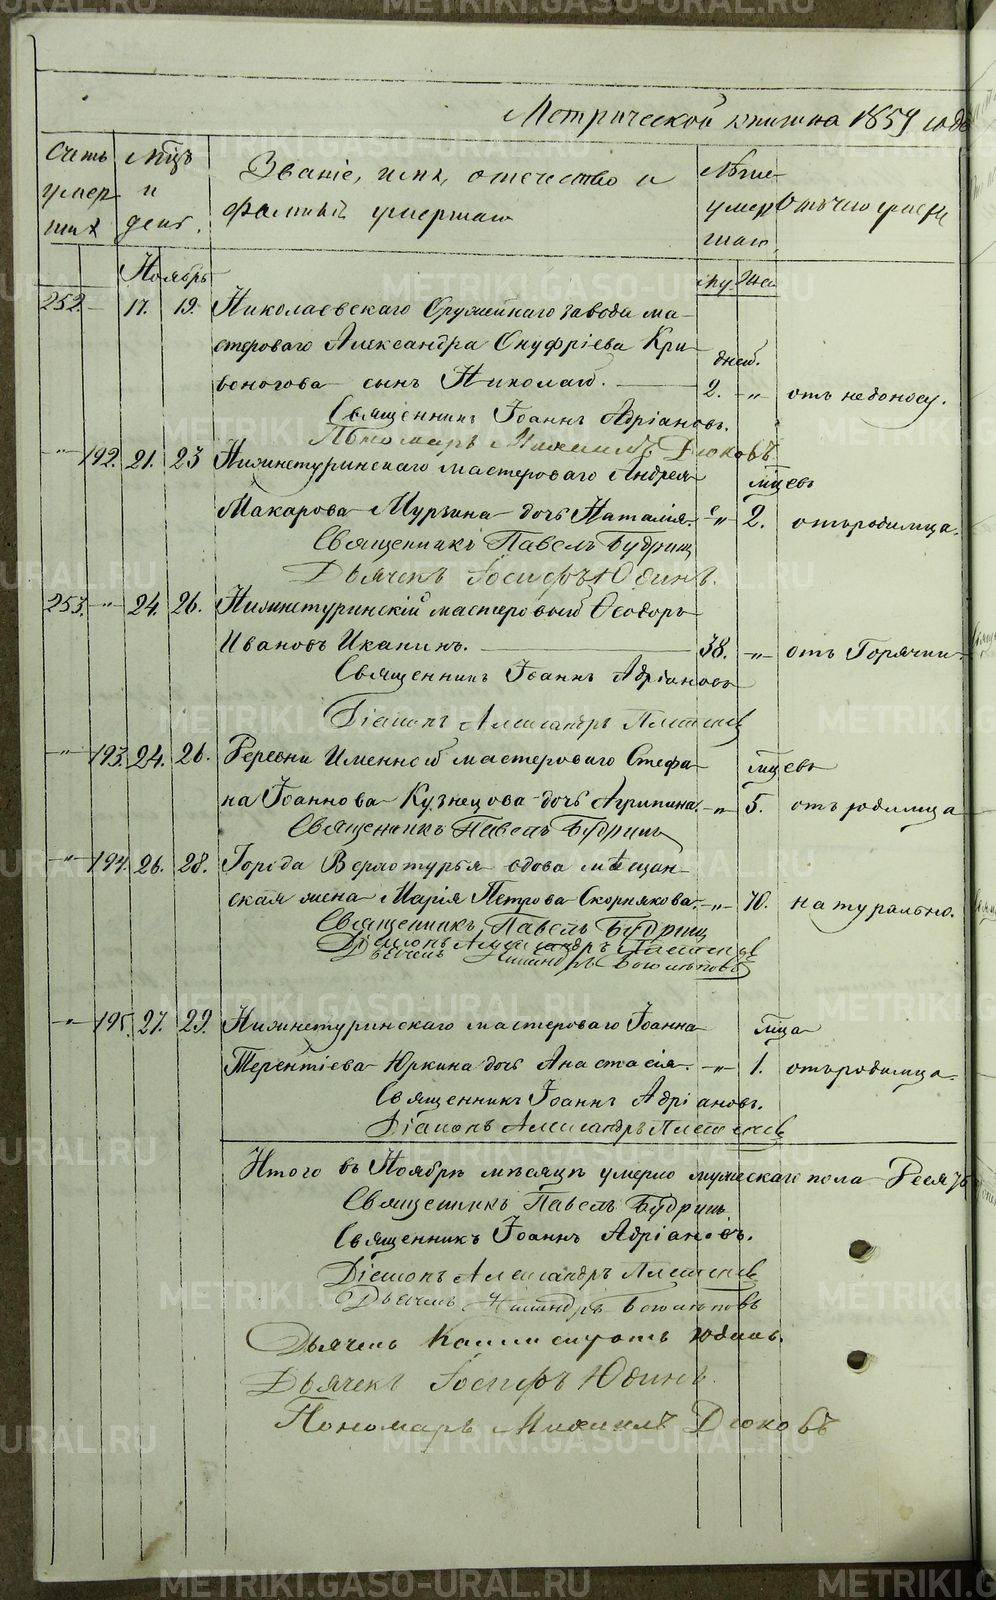 Метрической книги на 1859 годъ
Счетъ умершихъ
Мѣсяцъ и день.
Званіе, имя, отечество и фамилія умершаго
Лѣта умершаго.
Отъ чего умеръ
Ноябрь
му. жен.
252. — 17. 19. Николаевскаго Оружейнаго завода ма-
стероваго Александра Онуфріева Кри- дней.
воногова сынъ Николай. — 2. „ отъ недоносу.
Священникъ Іоаннъ Адріановъ.
Пономарь Михаилъ Дюковъ
„ 192. 21. 23 Нижнетуринскаго мастероваго Андрея мѣсцевъ
Макарова Мурзина дочь Наталія. „ 2. отъ родимца.
Священникъ Павелъ Будринъ
Дьячекъ Іосифъ Юдинъ.
253. „ 24. 26. Нижнетуринскій мастеровый Ѳеодоръ
Ивановъ Иканинъ. — 38. „ отъ Горячки.
Священникъ Іоаннъ Адріановъ
Діаконъ Александръ
„ 193. 24. 26. Деревни Именной мастероваго Стефа- мѣсцевъ
на Іоаннова Кузнецова дочь Агрипина. „ 5. отъ родимца
Священникъ Павелъ Будринъ
„ 194. 26. 28. Города Верхотурья вдова мѣщан-
ская жена Марія Петрова Скорнякова. „ 70. натурально.
Священникъ Павелъ Будринъ
Діаконъ Александръ
Дьячекъ
„ 195. 27. 29. Нижнетуринскаго мастероваго Іоанна мѣсца
Терентіева Юркина дочь Анастасія. „ 1. отъ родимца.
Священникъ Іоаннъ Адріановъ.
Діаконъ Александръ
Итого въ Ноябрѣ мѣсяцѣ умерло мужескаго пола Десять
Священникъ Павелъ Будринъ.
Священникъ Іоаннъ Адріановъ.
Діаконъ Александръ
Дьячекъ
Дьячекъ Юдинъ.
Дьячекъ Іосифъ Юдинъ.
Пономарь Михаилъ Дюковъ
METRIKI.GASO-URAL.RU